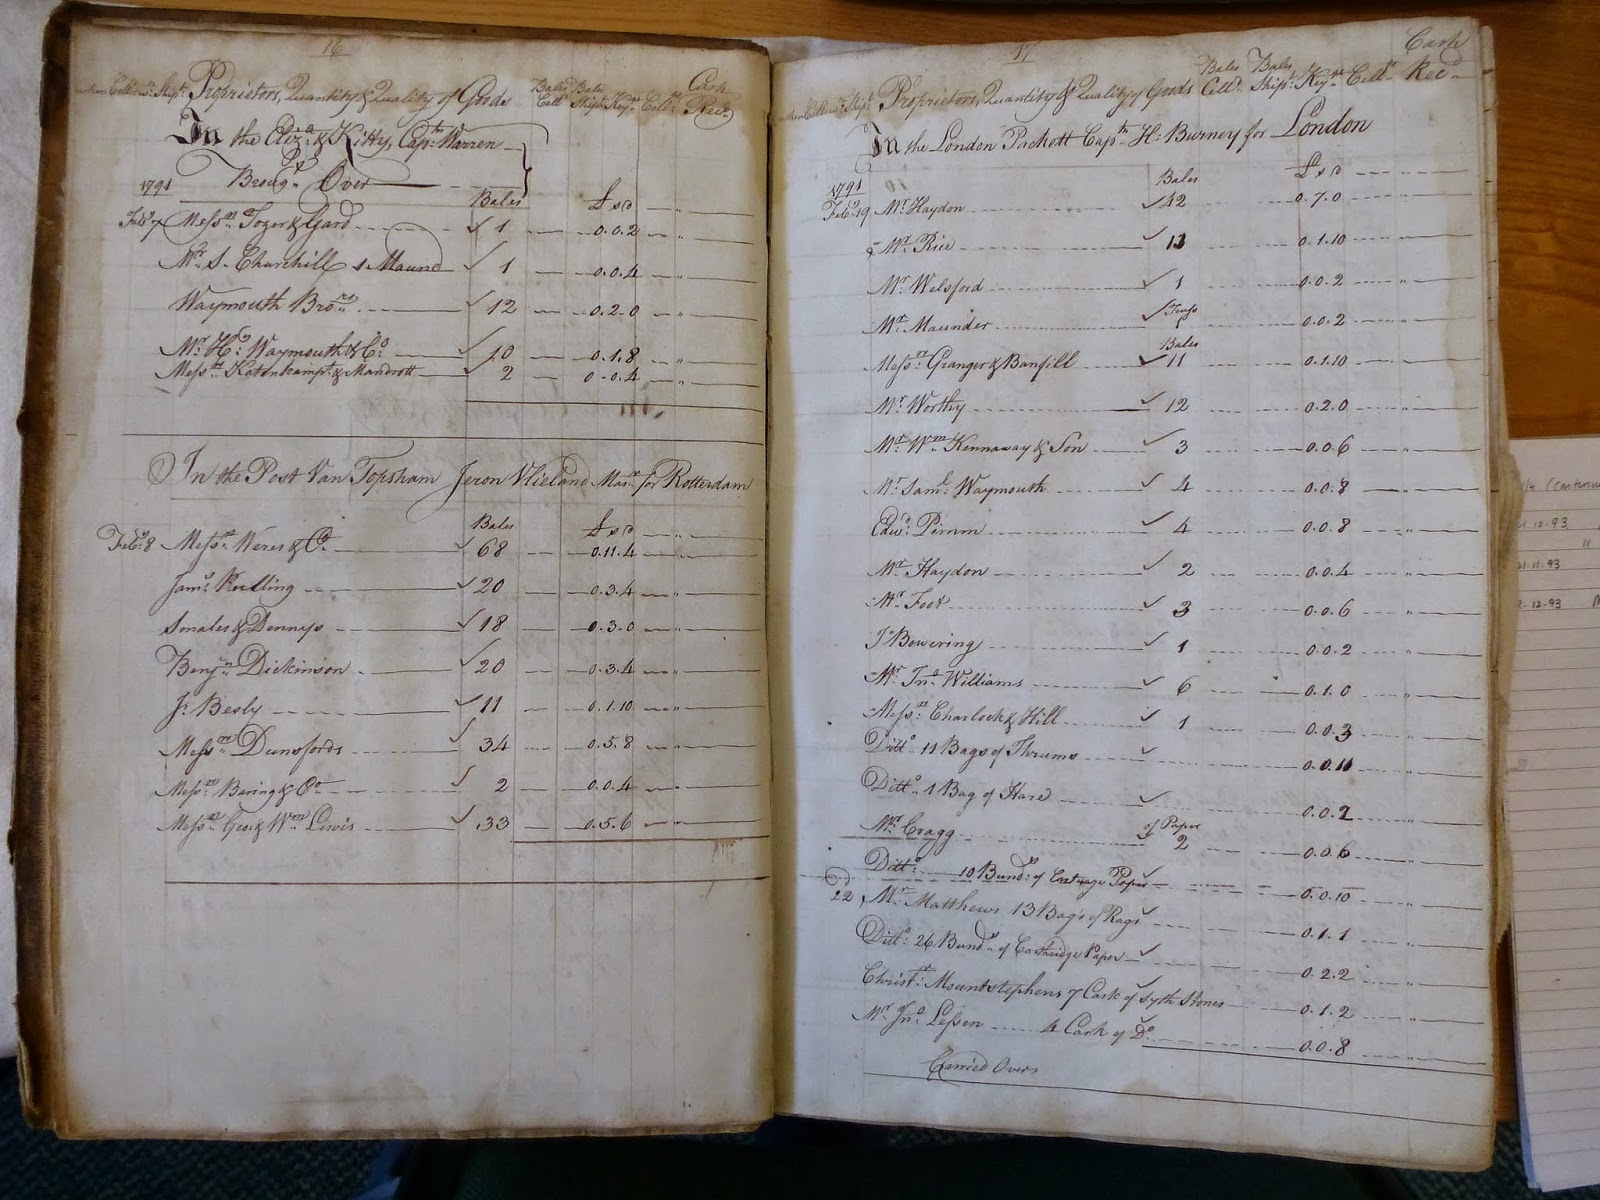 16
when Coll:
Proprietors, Quantity & Quality of Goods
Bales Colld
Bales Shipt
Cash Recd
In the Eliza: & Kitty, Captn Warren
Brougt Over
1791
Bales
£ s d
Feby 7 Messrs Tozer & Gard 1 0.0.2
Mr S. Churchill 1 Maund 1 0.0.4
Waymouth Brors 12 0.2.0
Mr Hy: Waymouth & Co: 10 0.1.8
Messrs Katenkampt & Mandrott 2 0.0.4
In the Post Van Topsham Jeron Vlieland Masr for Rotterdam
Bales £ s d
Feby: 8 Messrs Weres & Co 68 0.11.4
Jams 20 0.3.4
Smales & Dennys 18 0.3.0
Benjn Dickinson 20 0.3.4
Jn Besly 11 0.1.10
Messrs Dunsfords 34 0.5.8
Messrs Baring & Co 2 0.0.4
Messrs Geo: & Wm Lewis 33 0.5.6
17
Proprietors, Quantity & Quality of Goods
Bales Colld
Bales Shipt
Cash Recd
In the London Packett Captn H: Burney for London
1791
Bales
£ s d
Feby 19 Mr Haydon 42 0.7.0
Mr Rice 11 0.1.10
Mr Welsford 1 0.0.2
Mr Maunder Truss 1 0.0.2
Bales
Messrs Granger & Banfill 11 0.1.10
Mr Worthy 12 0.2.0
Mr Wm Kennaway & Son 3 0.0.6
Mr Saml Waymouth 4 0.0.8
Edwd: Pimm 4 0.0.8
Mr Haydon 2 0.0.4
Mr Foot 3 0.0.6
Js Bowering 1 0.0.2
Mr Jno Williams 6 0.1.0
Messrs Charlock & Hill 1 0.0.3
Ditto 11 Bags of Thrums 0.0.11
Ditto 1 Bag of Hare 0.0.2
Mr Cragg of Paper 2 0.0.6
Ditto: 10 Bunds: of Cartrage Paper 0.0.10
22 Mr Matthews 13 Bags of Rags 0.1.1
Ditto: 26 Bunds of Cartridge Paper 0.2.2
Christr: Mountstephens 7 Cask of Syth Stones 0.1.2
Mr Jno: Lessen 4 Cask of Do 0.0.8
Carried Over
.10.93
"
21.11.93
.12.93